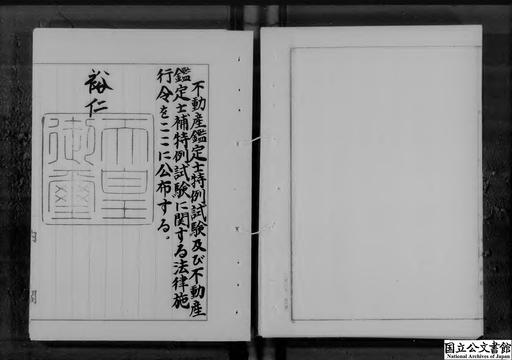 不動産鑑定士特例試験及び不動産
鑑定士補特例試験に関する法律施
行令をここに公布する。
裕仁
天皇
御璽
内 閣
国立公文書館
National Archives of Japan